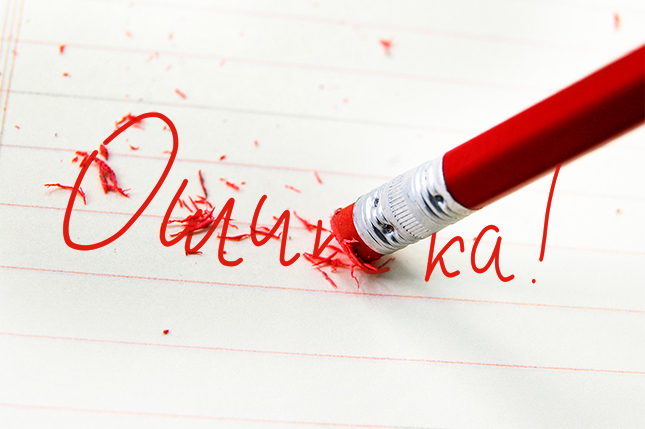 Оши ка!